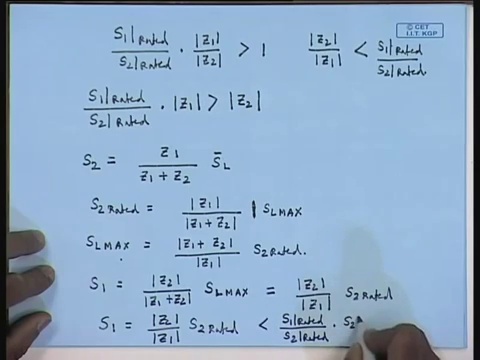 © CET
I.I.T. KGP
S₁|Rated / S₂|Rated · |Z₁| / |Z₂| > 1    |Z₂| / |Z₁| < S₁|Rated / S₂|Rated
S₁|Rated / S₂|Rated · |Z₁| > |Z₂|
S₂ = Z₁ / Z₁ + Z₂ S̄L
S₂ Rated = |Z₁| / |Z₁ + Z₂| | SLMAX
SLMAX = |Z₁ + Z₂| / |Z₁| S₂ Rated.
S₁ = |Z₂| / |Z₁ + Z₂| SLMAX = |Z₂| / |Z₁| S₂ Rated
S₁ = |Z₂| / |Z₁| S₂ Rated < S₁|Rated / S₂|Rated · S₂